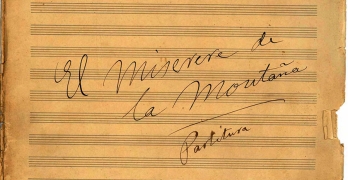 El Miserere de
la Montaña
Partitura